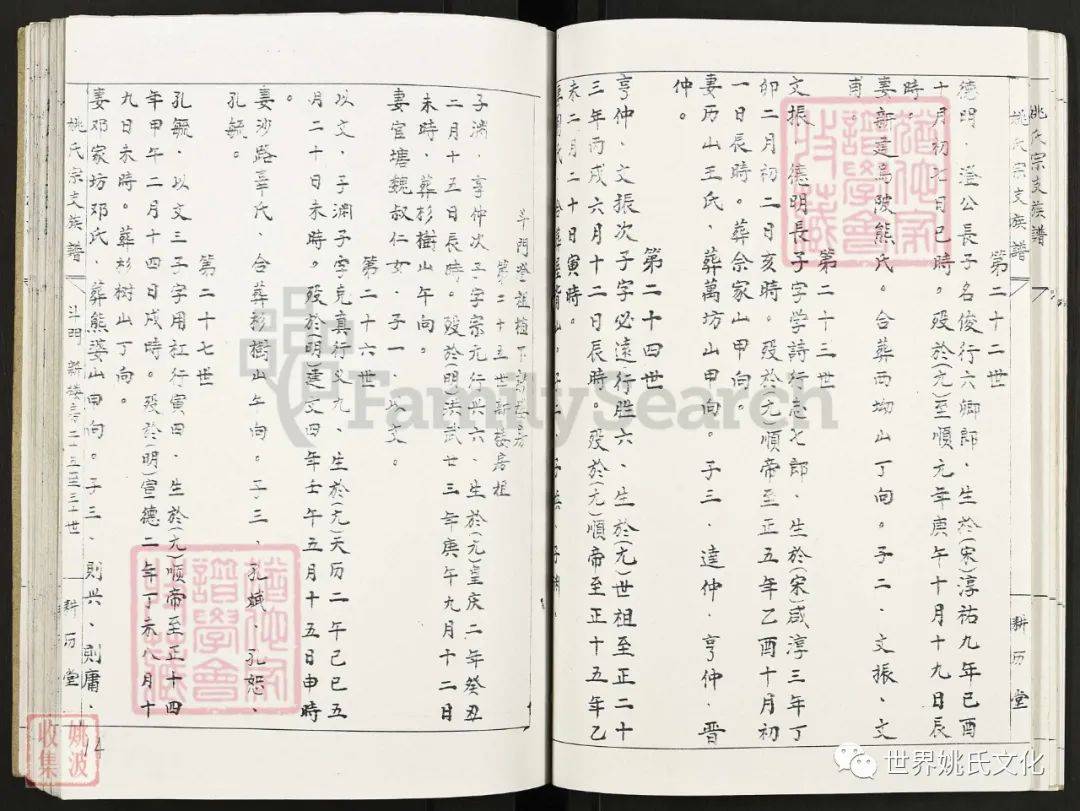 姚氏宗支族譜
姚氏宗支族譜
耕历堂
第二十二世
德明．澄公長子名俊行六卿郎．生於(宋)淳祐九年己酉
十月初七日巳時。殁於(元)至順元年庚午十月十九日辰
時。
妻新建烏陂熊氏。合葬西坳山丁向。子二．文振、文
甫。
第二十三世
文振．德明長子字学詩行志七郎．生於(宋)咸淳三年丁
卯二月初二日亥時。殁於元順帝至正五年乙酉十月初
一日辰時。葬佘家山甲向。
妻历山王氏．葬萬坊山甲向。子三．達仲．亨仲．晋
仲。
第二十四世
亨仲．文振次子字必遠行胜六．生於(元)世祖至正二十
三年丙戌六月十二日辰時。殁於(元)順帝至正十五年乙
未二月二十日寅時。
斗門登祖植下新楼房
第二十五世新楼房祖
子渊．亨仲次子字宗元行兴六．生於(元)皇庆二年癸丑
二月十五日辰時。殁於(明)洪武廿三年庚午九月十二日
未時．葬杉樹山午向。
妻官塘魏叔仁女．子一．以文。
第二十六世
以文．子渊子字克真行义九．生於(元)天历二年己巳五
月二十日未時。殁於(明)建文四年壬午五月十五日申時
。
妻沙路辛氏．合葬杉樹山午向。子三．孔斌、孔恕、
孔毓。
第二十七世
孔毓．以文三子字用杠行寅四．生於(元)順帝至正十四
年甲午二月十四日戌時。殁於(明)宣德二年丁未八月十
九日未時。葬杉树山丁向。
妻邓家坊邓氏．葬熊婆山曲向。子三．則兴、則庸、
姚氏宗支族譜
斗門新楼房二十三至三十世
耕历堂
14
姚波
收集
FamilySearch
世界姚氏文化